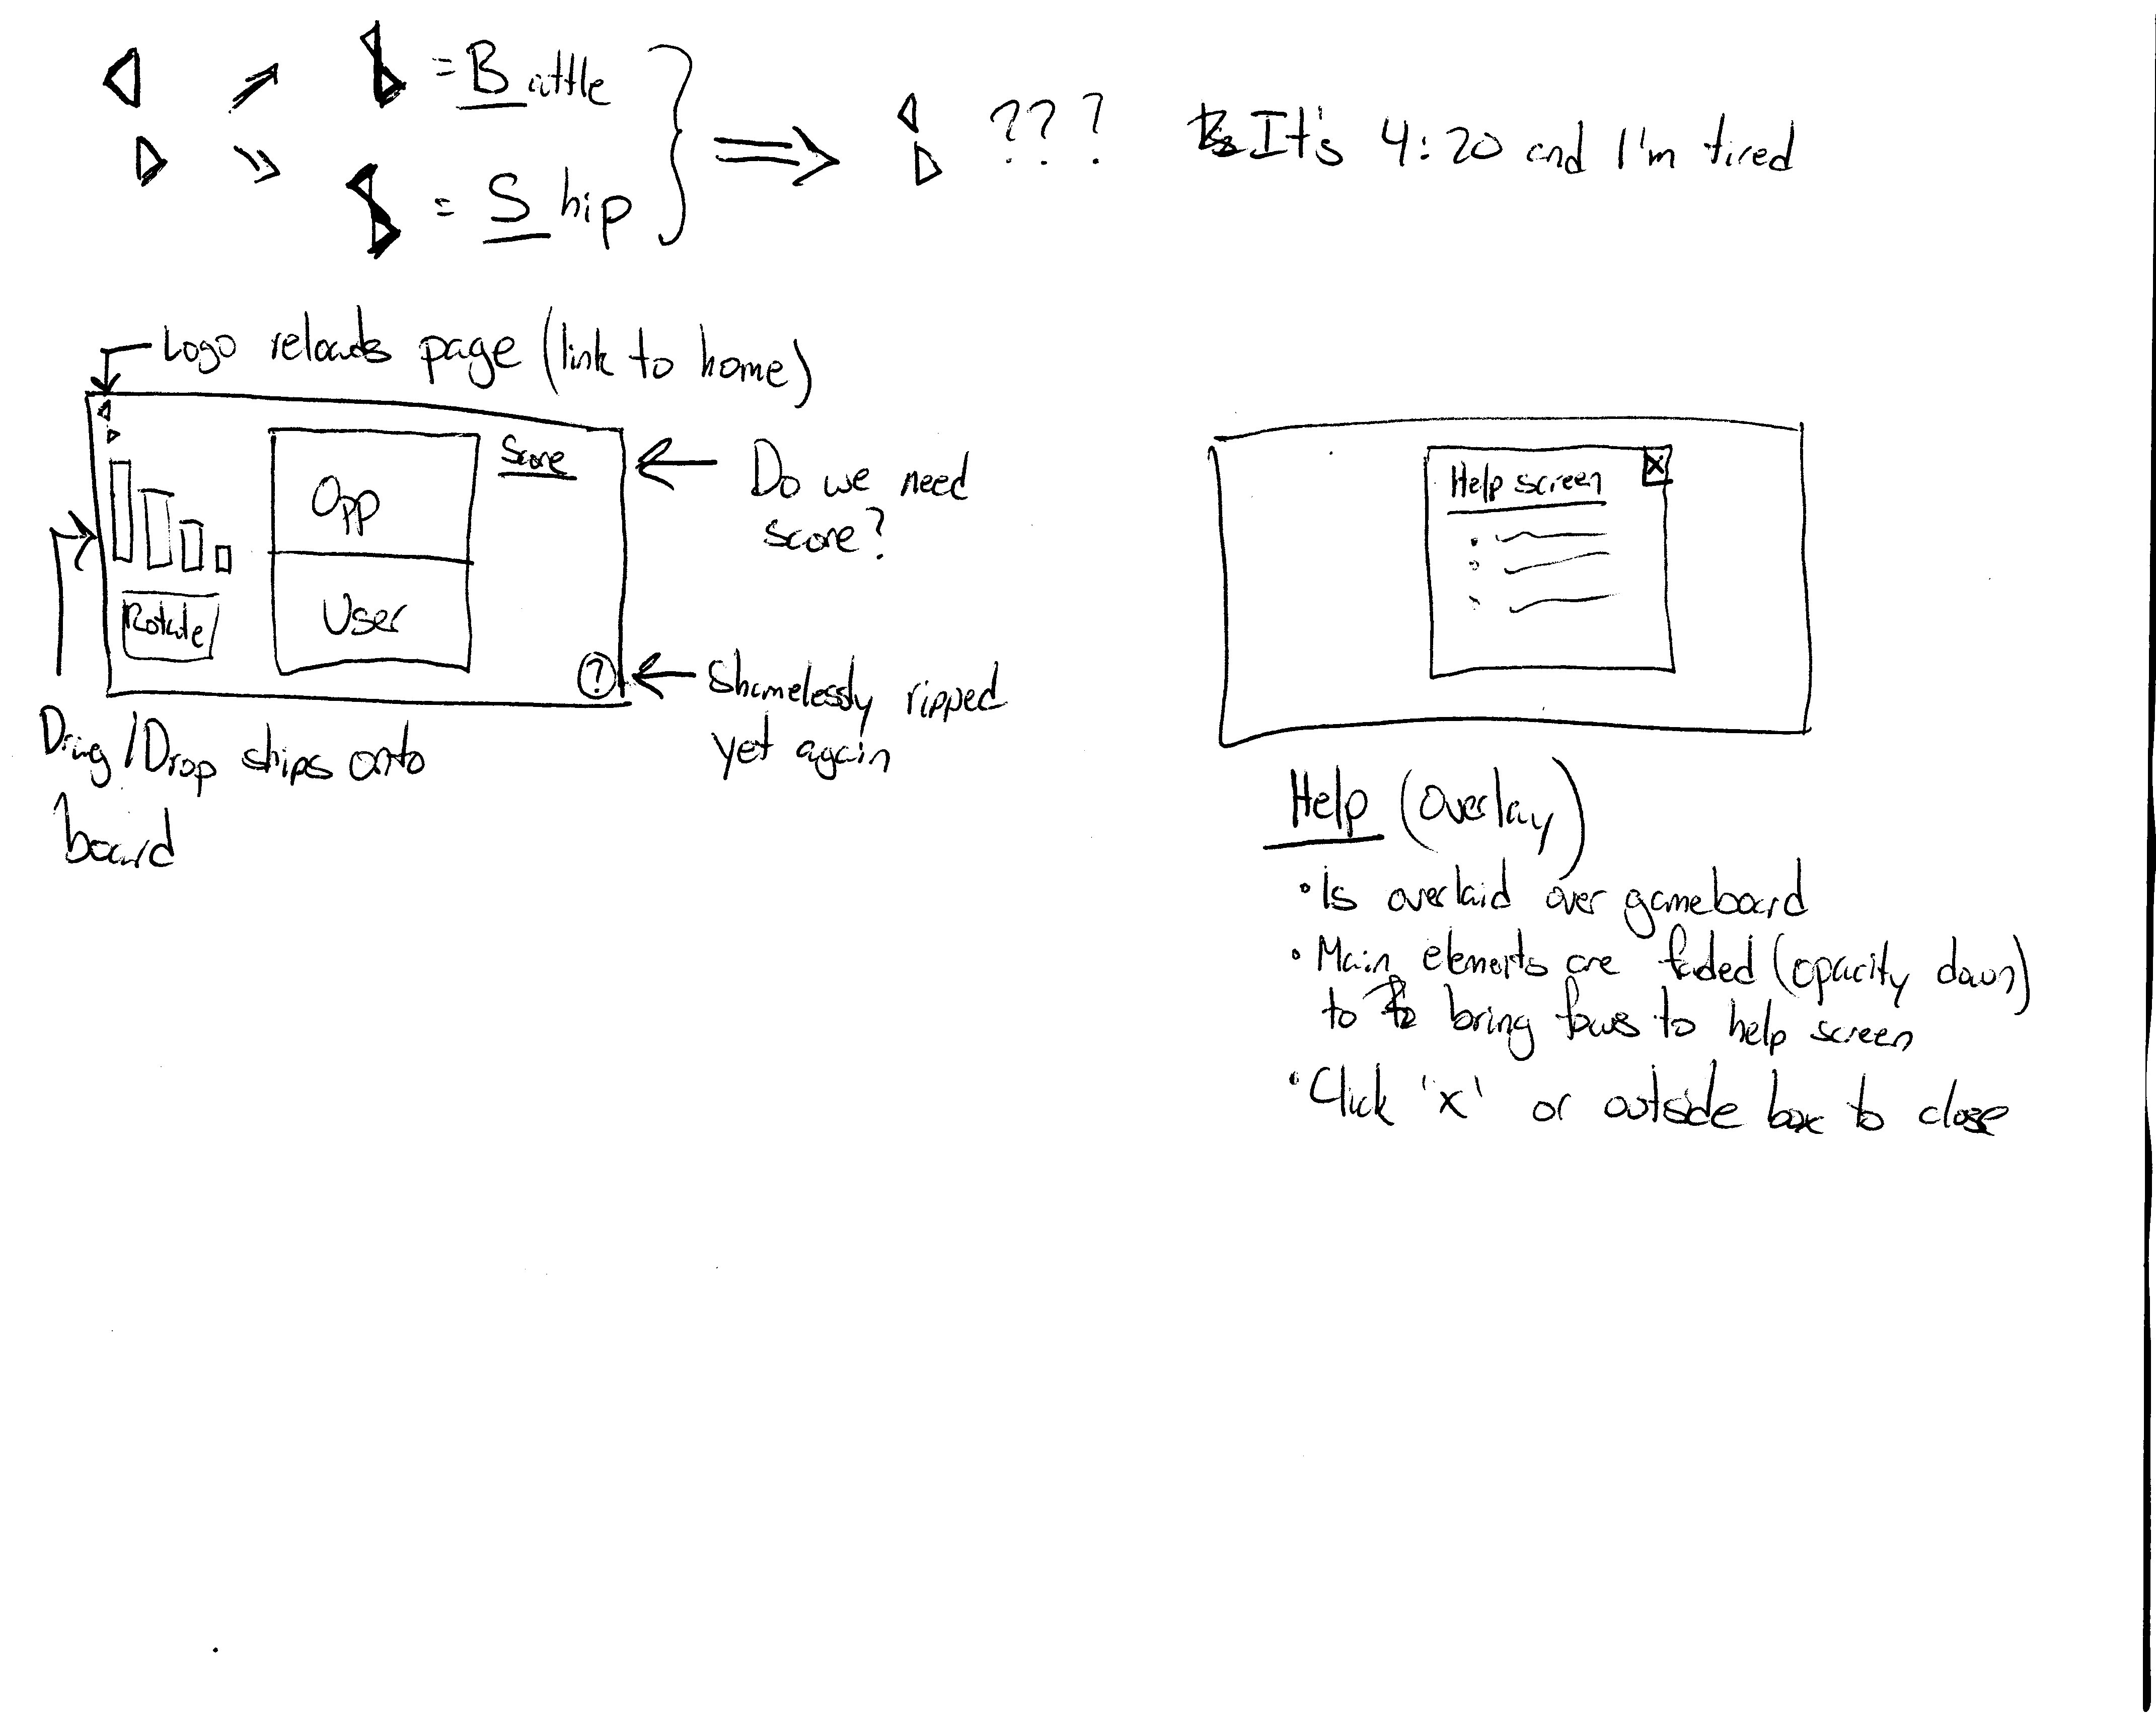 = Battle
= Ship
??? It's 4:20 and I'm tired
Logo reloads page (link to home)
Score
Opp
User
Rotate
?
Do we need
score?
Shamelessly ripped
yet again
Drag/Drop ships onto
board
Help screen
X
Help (overlay)
• Is overlaid over gameboard
• Main elements are faded (opacity down)
to bring focus to help screen
• Click 'x' or outside box to close